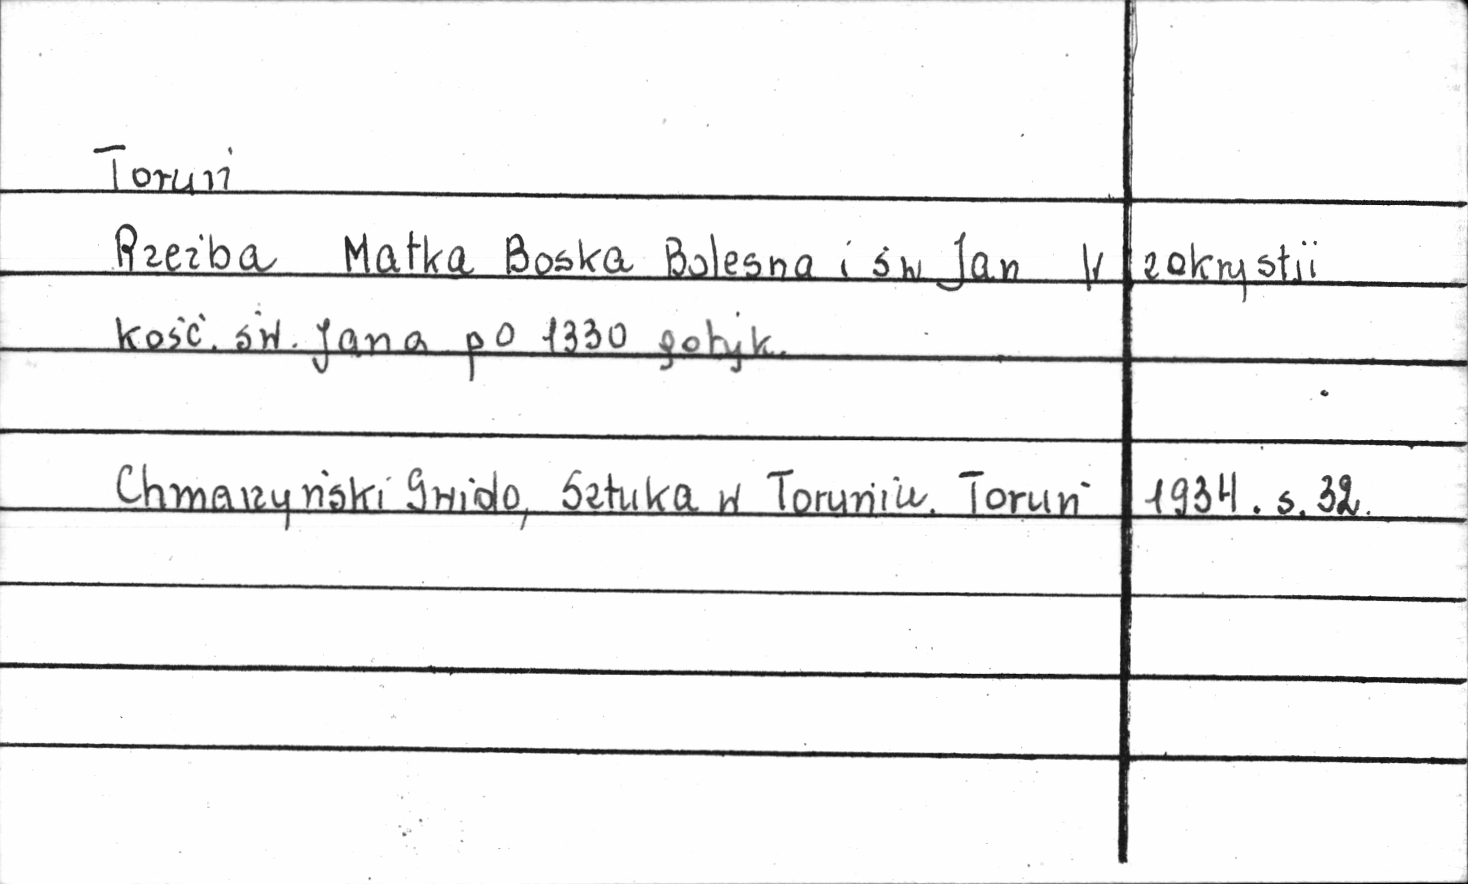 Toruń
Rzeźba Matka Boska Bolesna i św Jan w zakrystii
kość. św. Jana po 1330 gotyk.
Chmarzyński Gwido, Sztuka w Toruniu. Toruń 1934. s. 32.